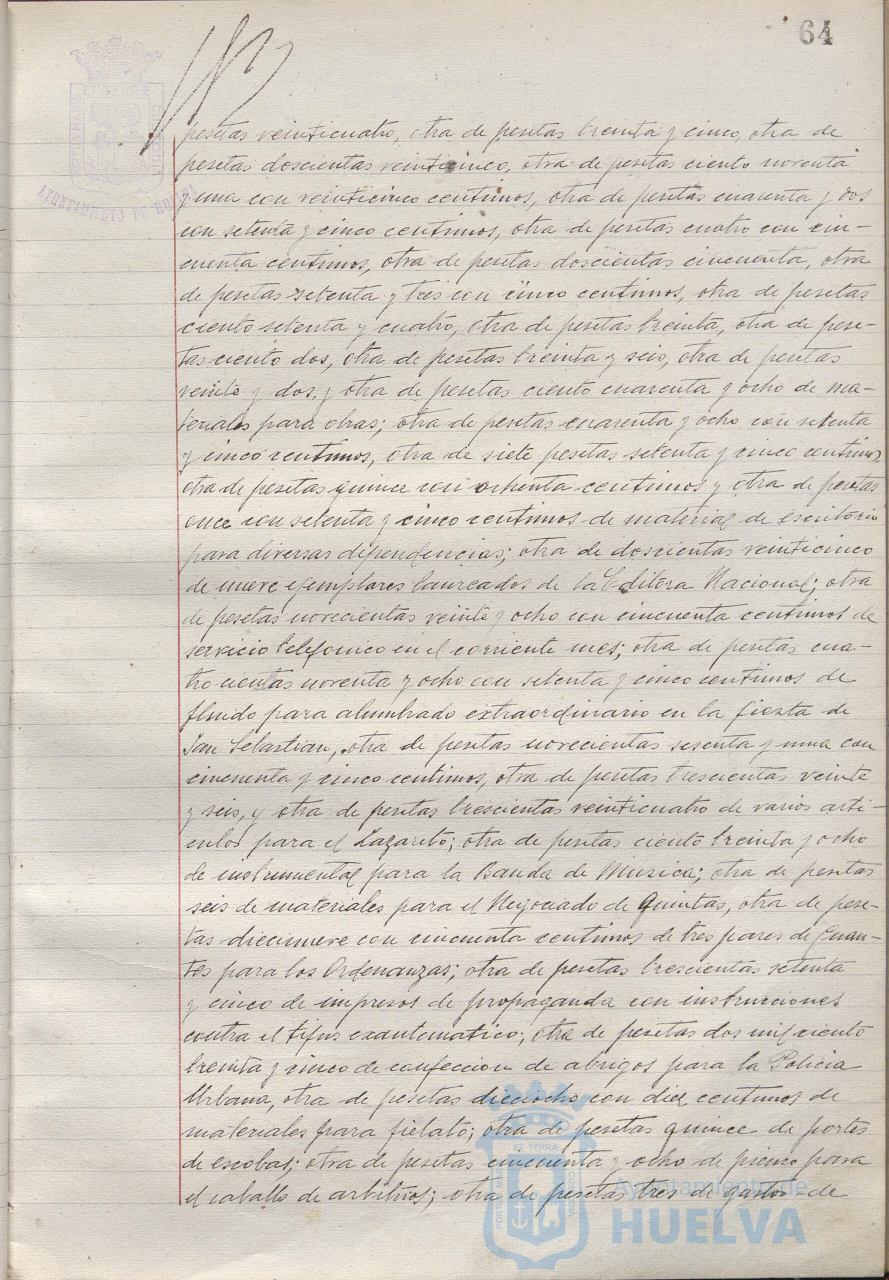 64
pesetas veinticuatro, otra de pesetas treinta y cinco, otra de
pesetas doscientas veinticinco, otra de pesetas ciento noventa
y una con veinticinco centimos, otra de pesetas cuarenta y dos
con setenta y cinco centimos, otra de pesetas cuatro con cin-
cuenta centimos, otra de pesetas doscientas cincuenta, otra
de pesetas setenta y tres con cinco centimos, otra de pesetas
ciento setenta y cuatro, otra de pesetas treinta, otra de pese-
tas ciento dos, otra de pesetas treinta y seis, otra de pesetas
veinte y dos, y otra de pesetas ciento cuarenta y ocho de ma-
teriales para obras; otra de pesetas cuarenta y ocho con setenta
y cinco centimos, otra de siete pesetas setenta y cinco centimos,
otra de pesetas quince con ochenta centimos y otra de pesetas
once con setenta y cinco centimos de material de escritorio
para diversas dependencias; otra de doscientas veinticinco
de nueve ejemplares laureados de la Editora Nacional; otra
de pesetas novecientas veinte y ocho con cincuenta centimos de
servicio telefonico en el corriente mes; otra de pesetas cua-
trocientas noventa y ocho con setenta y cinco centimos de
fluido para alumbrado extraordinario en la fiesta de
San Sebastian, otra de pesetas novecientas sesenta y una con
cincuenta y cinco centimos, otra de pesetas trescientas veinte
y seis, y otra de pesetas trescientas veinticuatro de varios arti-
culos para el Lazareto; otra de pesetas ciento treinta y ocho
de instrumental para la Banda de Musica; otra de pesetas
seis de materiales para el Negociado de Quintas, otra de pese-
tas diecinueve con cincuenta centimos de tres pares de Guan-
tes para los Ordenanzas; otra de pesetas trescientas setenta
y cinco de impresos de propaganda con instrucciones
contra el tifus exantematico; otra de pesetas dos mil ciento
treinta y cinco de confeccion de abrigos para la Policia
Urbana, otra de pesetas dieciocho con diez centimos de
materiales para fielato; otra de pesetas quince de portes
de escobas; otra de pesetas cincuenta y ocho de pienso para
el caballo de arbitrios; otra de pesetas tres de gastos de
AYUNTAMIENTO DE HUELVA
Ayuntamiento de
HUELVA